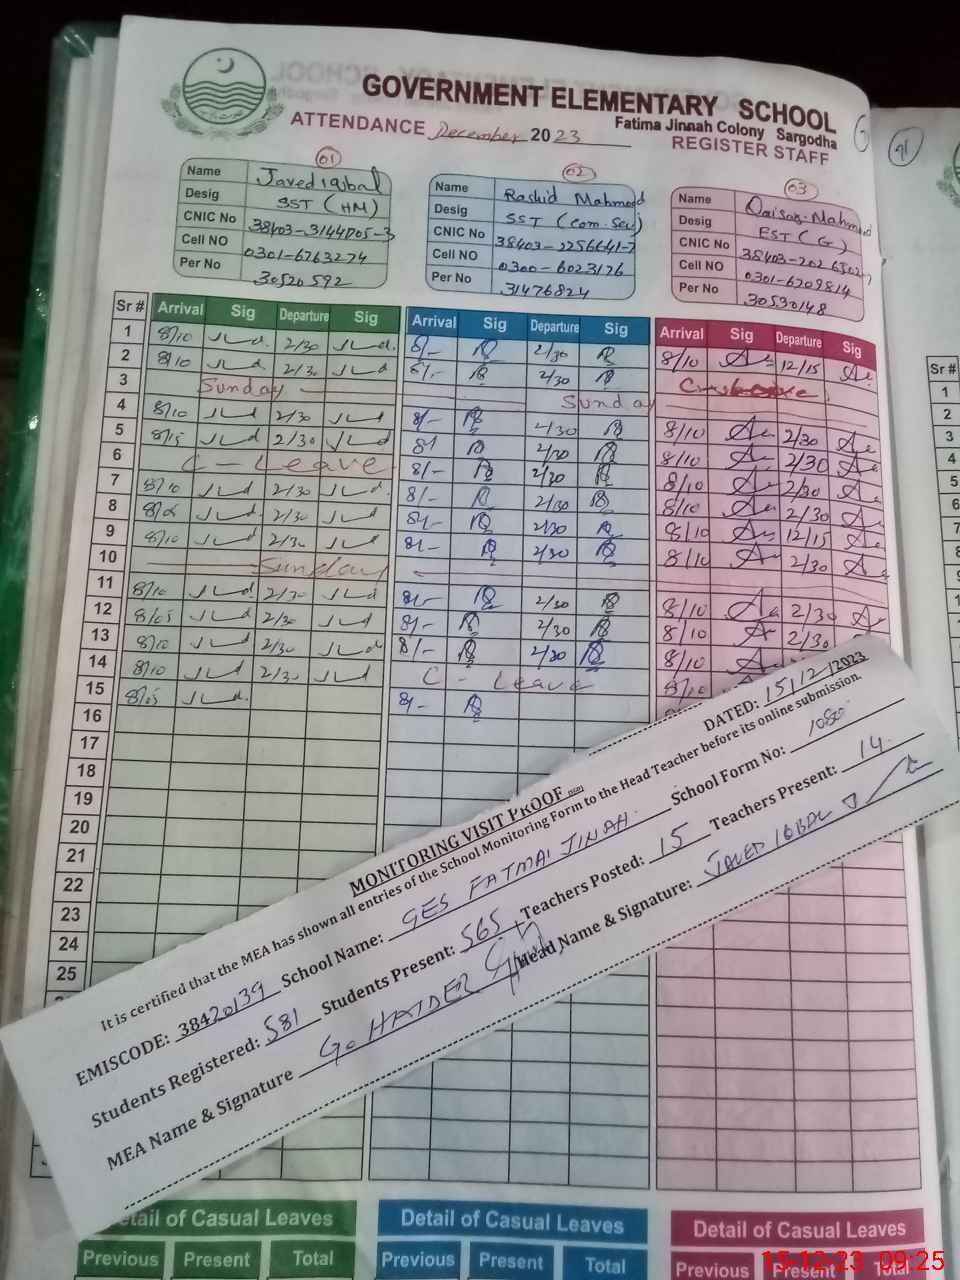 GOVERNMENT ELEMENTARY SCHOOL
Fatima Jinnah Colony Sargodha
ATTENDANCE December 2023 REGISTER STAFF
01
Name Javed iqbal
Desig SST (HM)
CNIC No 38403-3144705-3
Cell NO 0301-6763274
Per No 30520592
02
Name Rashid Mahmood
Desig SST (Com.Sci)
CNIC No 38403-2256641-7
Cell NO 0300-6023176
Per No 31476824
03
Name Qaisar Mahmood
Desig EST (G)
CNIC No
Cell NO 0301-6209814
Per No 30530148
Sr # Arrival Sig Departure Sig Arrival Sig Departure Sig Arrival Sig Departure Sig
1 8/10 2/30 8/- 2/30 8/10 12/15
2 8/10 2/30 8/- 2/30
3 Sunday Sunday
4 8/10 2/30 8/- 2/30 8/10 2/30
5 8/15 2/30 8/- 2/30 8/10 2/30
6 C-Leave 8/- 2/30 8/10 2/30
7 8/10 2/30 8/- 2/30 8/10 2/30
8 2/30 8/- 2/30 8/10 12/15
9 8/10 2/30 8/- 2/30 8/10 2/30
10 Sunday
11 8/10 2/30 8/- 2/30 8/10 2/30
12 8/05 2/30 8/- 2/30 8/10 2/30
13 8/10 2/30 8/- 2/30 8/10
14 8/10 2/30 C-Leave 8/10
15 8/05 8/-
16
17
18
19
20
21
22
23
24
25
MONITORING VISIT PROOF
DATED: 15/12/2023
It is certified that the MEA has shown all entries of the School Monitoring Form to the Head Teacher before its online submission.
EMISCODE: 38420139 School Name: GES FATMAI JINAH. School Form No: 1080
Students Registered: 581 Students Present: 565 Teachers Posted: 15 Teachers Present: 14
MEA Name & Signature G. HAIDER Head Name & Signature: JAVED IQBAL
Detail of Casual Leaves Detail of Casual Leaves Detail of Casual Leaves
Previous Present Total Previous Present Total Previous Present Total
91
Sr #
1
2
3
4
5
6
7
8
15-12-23 09:25